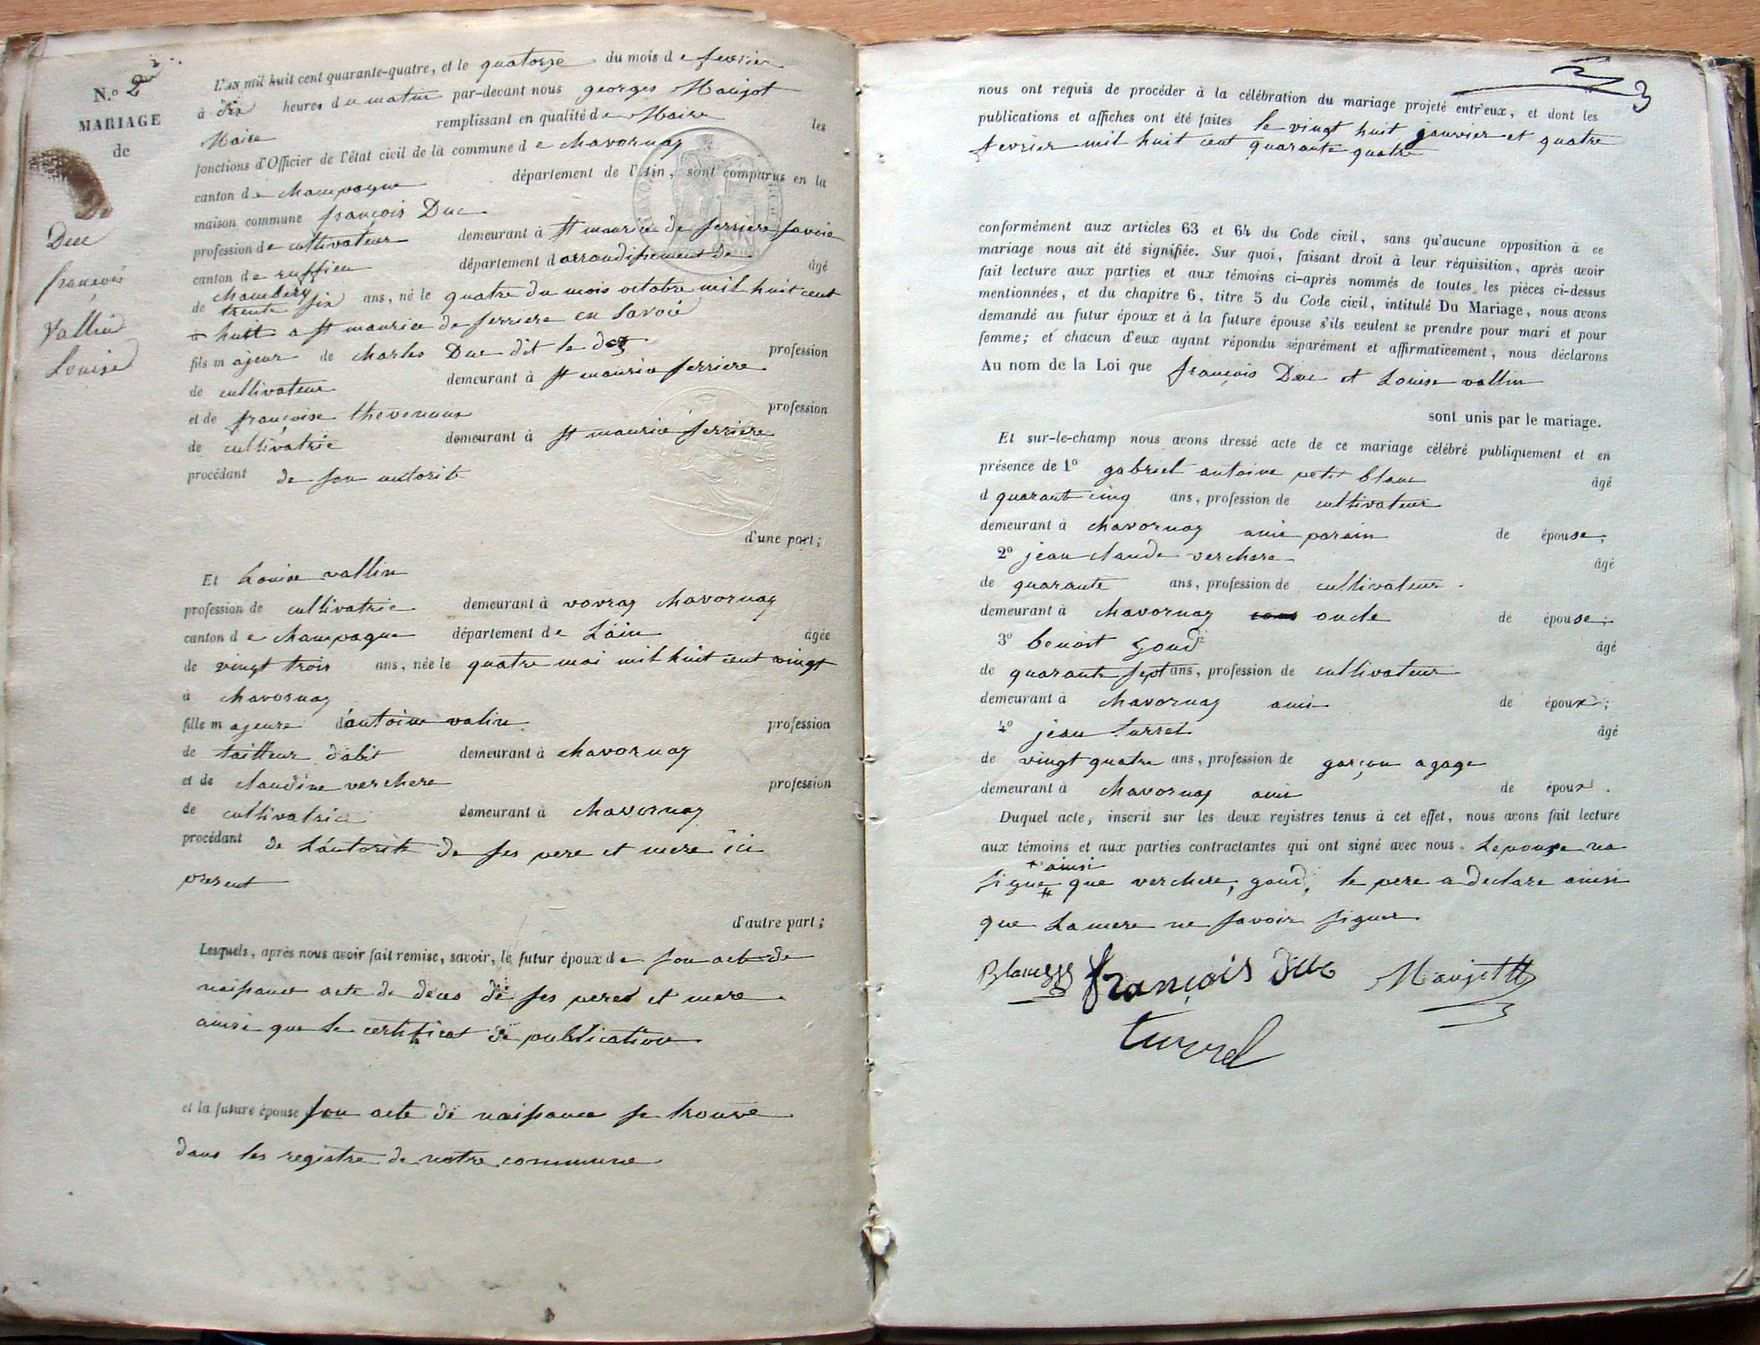 N.º 2
MARIAGE
de
Duc
françois
Vallin
Louise
L'an mil huit cent quarante-quatre, et le quatorze du mois de fevrier
à dix heures du matin par-devant nous georges Maujot
Maire remplissant en qualité de Maire les
fonctions d'Officier de l'état civil de la commune de chavornay
canton de champagne département de l'Ain, sont comparus en la
maison commune françois Duc
profession de cultivateur demeurant à st maurice de ferriere savoie
canton de ruffieu département d arrondissement de
chambery âgé
de trente six ans, né le quatre du mois octobre mil huit cent
huit a st maurice de ferriere en Savoie
fils majeur de charles Duc dit le profession
de cultivateur demeurant à st maurice ferriere
et de françoise thevenoux profession
de cultivatrie demeurant à st maurice ferriere
procédant de son autorite
d'une part;
Et Louise vallin
profession de cultivatrie demeurant à vovray chavornay
canton de champagne département de Lain âgée
de vingt trois ans, née le quatre mai mil huit cent vingt
à chavornay
fille majeure d'antoine valin profession
de tailleur d'abit demeurant à chavornay
et de claudine verchere profession
de cultivatrice demeurant à chavornay
procédant de L'autorite de ses pere et mere ici
present
d'autre part;
Lesquels, après nous avoir fait remise, savoir, le futur époux de son acte de
naissance acte de deces de ses peres et mere
ainsi que le certificat de publication
et la future épouse son acte de naissance se trouve
dans les registre de notre commune
3
nous ont requis de procéder à la célébration du mariage projeté entr'eux, et dont les
publications et affiches ont été faites le vingt huit janvier et quatre
fevrier mil huit cent quarante quatre
conformément aux articles 63 et 64 du Code civil, sans qu'aucune opposition à ce
mariage nous ait été signifiée. Sur quoi, faisant droit à leur réquisition, après avoir
fait lecture aux parties et aux témoins ci-après nommés de toutes les pièces ci-dessus
mentionnées, et du chapitre 6, titre 5 du Code civil, intitulé Du Mariage, nous avons
demandé au futur époux et à la future épouse s'ils veulent se prendre pour mari et pour
femme; et chacun d'eux ayant répondu séparément et affirmativement, nous déclarons
Au nom de la Loi que françois Duc et Louise vallin
sont unis par le mariage.
Et sur-le-champ nous avons dressé acte de ce mariage célébré publiquement et en
présence de 1º gabriel antoine petit blanc âgé
d quarante cinq ans, profession de cultivateur
demeurant à chavornay ami parain de épouse;
2º jean claude verchere âgé
de quarante ans, profession de cultivateur
demeurant à chavornay oncle de épouse;
3º benoit goud âgé
de quarante sept ans, profession de cultivateur
demeurant à chavornay ami de époux;
4º jean turrel âgé
de vingt quatre ans, profession de garçon a gage
demeurant à chavornay ami de époux.
Duquel acte, inscrit sur les deux registres tenus à cet effet, nous avons fait lecture
aux témoins et aux parties contractantes qui ont signé avec nous. Lepouse na
+ ainsi
signe que verchere, goud, le pere a declare ainsi
que La mere ne savoir signer
Blanc françois duc Maujot
turrel